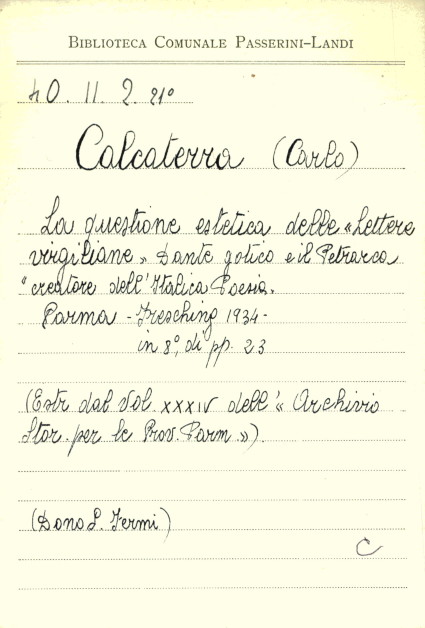 BIBLIOTECA COMUNALE PASSERINI-LANDI
40. 11. 2. 21°
Calcaterra (Carlo)
La questione estetica delle «Lettere
virgiliane» Dante gotico e il Petrarca
"creatore dell'Italica Poesia.
Parma - Fresching 1934-
in 8°, di pp. 23
(Estr dal Vol. XXXIV dell'« Archivio
Stor. per le Prov. Parm »).
(Dono S. Fermi)
C